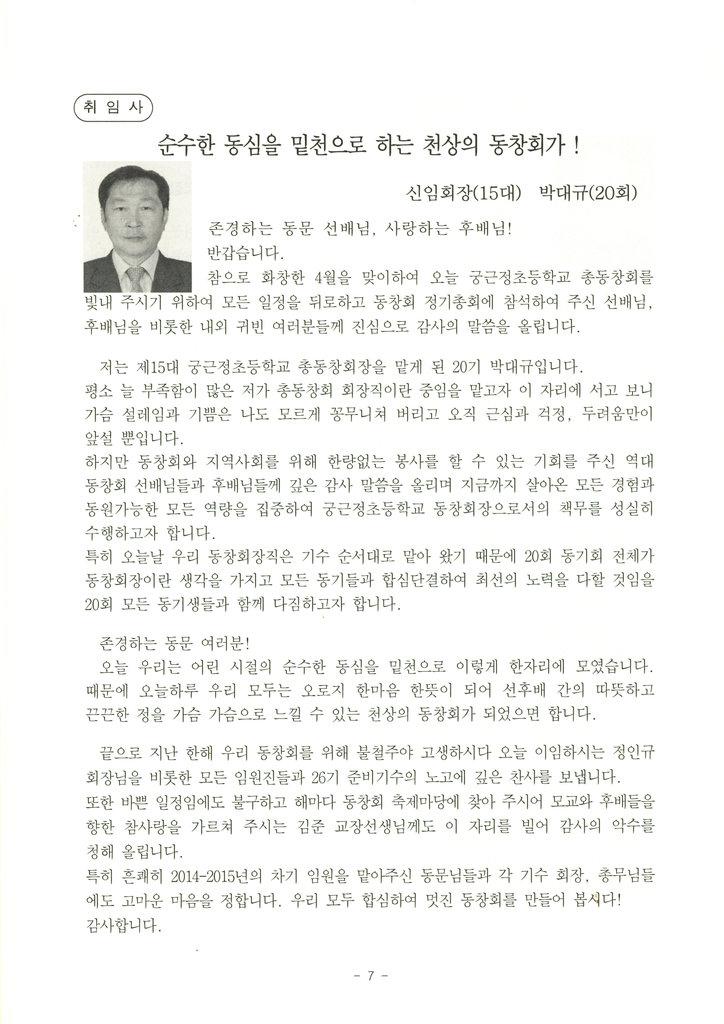 취 임 사
순수한 동심을 밑천으로 하는 천상의 동창회가 !
신임회장(15대) 박대규(20회)
존경하는 동문 선배님, 사랑하는 후배님!
반갑습니다.
참으로 화창한 4월을 맞이하여 오늘 궁근정초등학교 총동창회를
빛내 주시기 위하여 모든 일정을 뒤로하고 동창회 정기총회에 참석하여 주신 선배님,
후배님을 비롯한 내외 귀빈 여러분들께 진심으로 감사의 말씀을 올립니다.
저는 제15대 궁근정초등학교 총동창회장을 맡게 된 20기 박대규입니다.
평소 늘 부족함이 많은 저가 총동창회 회장직이란 중임을 맡고자 이 자리에 서고 보니
가슴 설레임과 기쁨은 나도 모르게 꽁무니쳐 버리고 오직 근심과 걱정, 두려움만이
앞설 뿐입니다.
하지만 동창회와 지역사회를 위해 한량없는 봉사를 할 수 있는 기회를 주신 역대
동창회 선배님들과 후배님들께 깊은 감사 말씀을 올리며 지금까지 살아온 모든 경험과
동원가능한 모든 역량을 집중하여 궁근정초등학교 동창회장으로서의 책무를 성실히
수행하고자 합니다.
특히 오늘날 우리 동창회장직은 기수 순서대로 맡아 왔기 때문에 20회 동기회 전체가
동창회장이란 생각을 가지고 모든 동기들과 합심단결하여 최선의 노력을 다할 것임을
20회 모든 동기생들과 함께 다짐하고자 합니다.
존경하는 동문 여러분!
오늘 우리는 어린 시절의 순수한 동심을 밑천으로 이렇게 한자리에 모였습니다.
때문에 오늘하루 우리 모두는 오로지 한마음 한뜻이 되어 선후배 간의 따뜻하고
끈끈한 정을 가슴 가슴으로 느낄 수 있는 천상의 동창회가 되었으면 합니다.
끝으로 지난 한해 우리 동창회를 위해 불철주야 고생하시다 오늘 이임하시는 정인규
회장님을 비롯한 모든 임원진들과 26기 준비기수의 노고에 깊은 찬사를 보냅니다.
또한 바쁜 일정임에도 불구하고 해마다 동창회 축제마당에 찾아 주시어 모교와 후배들을
향한 참사랑을 가르쳐 주시는 김준 교장선생님께도 이 자리를 빌어 감사의 악수를
청해 올립니다.
특히 흔쾌히 2014-2015년의 차기 임원을 맡아주신 동문님들과 각 기수 회장, 총무님들
에도 고마운 마음을 정합니다. 우리 모두 합심하여 멋진 동창회를 만들어 봅시다!
감사합니다.
- 7 -